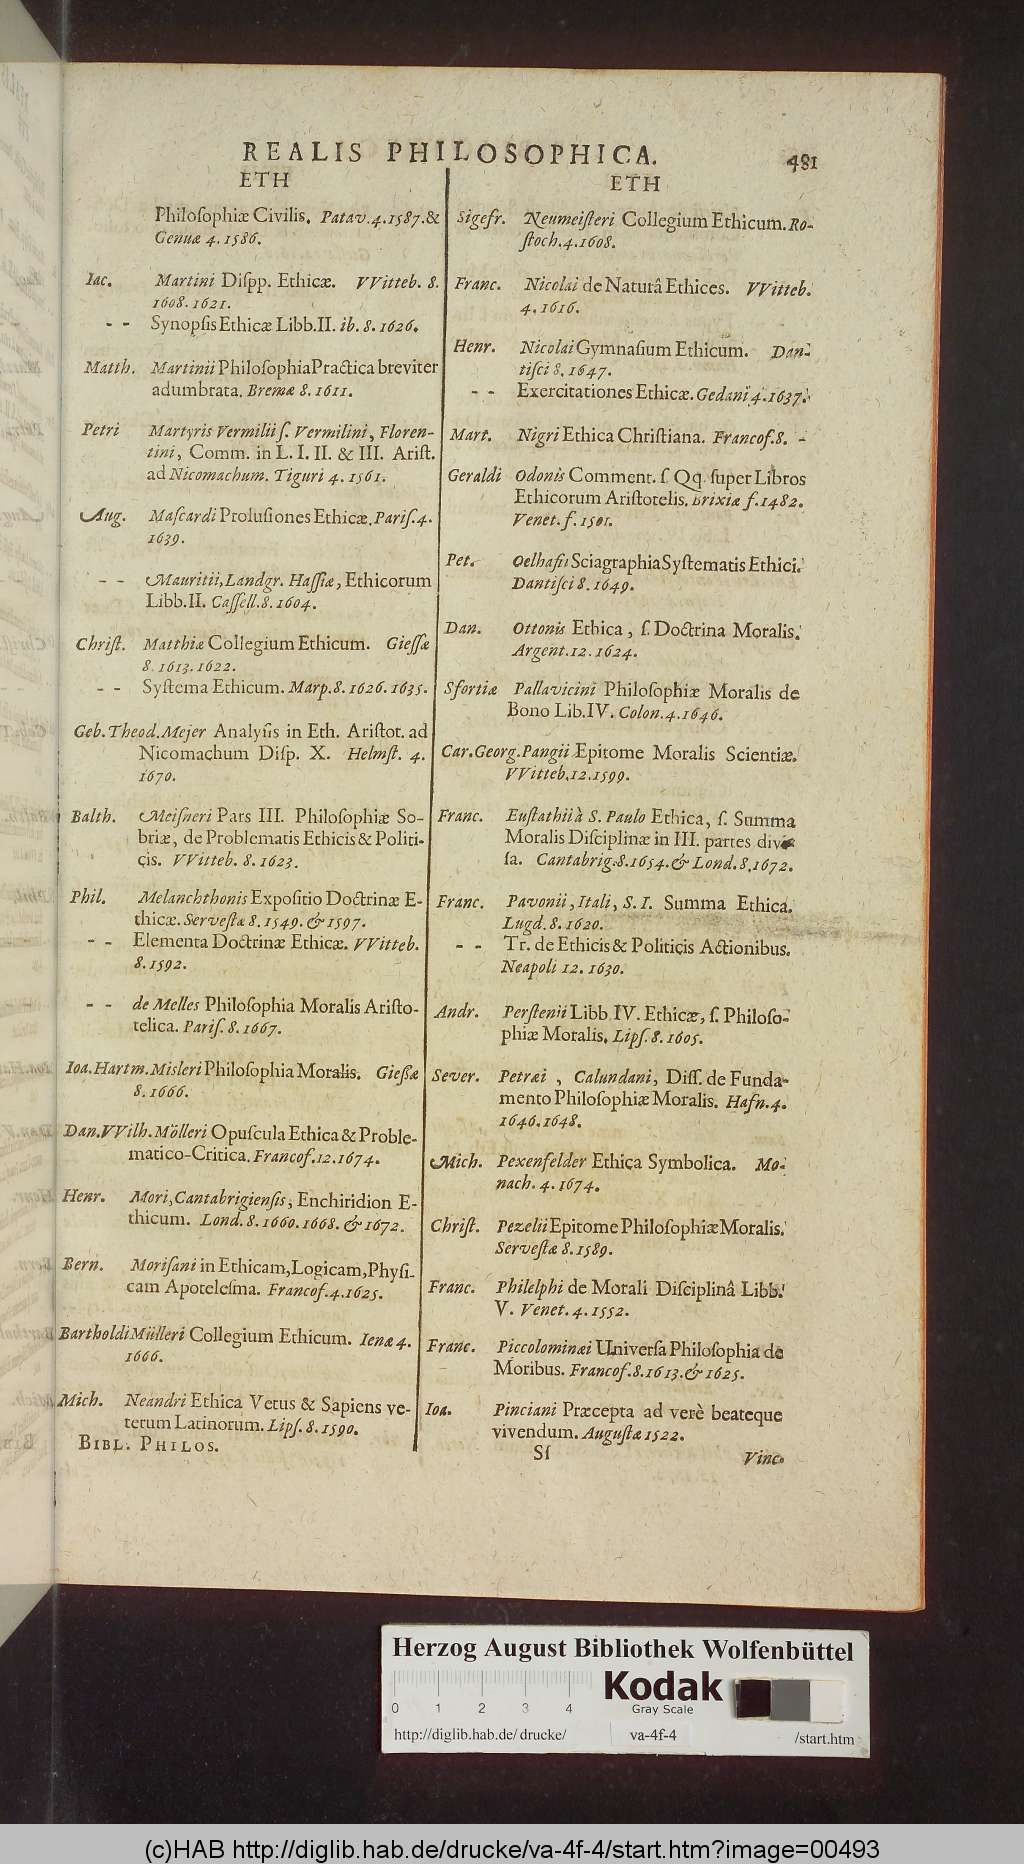 REALIS PHILOSOPHICA. 481
ETH
Philoſophiæ Civilis. Patav. 4. 1587. &
Genuæ 4. 1586.
Iac. Martini Diſpp. Ethicæ. VVitteb. 8.
1608. 1621.
- - Synopſis Ethicæ Libb. II. ib. 8. 1626.
Matth. Martinii Philoſophia Practica breviter
adumbrata. Bremæ 8. 1611.
Petri Martyris Vermilii ſ. Vermilini, Floren-
tini, Comm. in L. I. II. & III. Ariſt.
ad Nicomachum. Tiguri 4. 1561.
Aug. Maſcardi Proluſiones Ethicæ. Pariſ. 4.
1639.
- - Mauritii, Landgr. Haſſiæ, Ethicorum
Libb. II. Caſſell. 8. 1604.
Chriſt. Matthiæ Collegium Ethicum. Gieſſæ
8. 1613. 1622.
- - Syſtema Ethicum. Marp. 8. 1626. 1635.
Geb. Theod. Mejer Analyſis in Eth. Ariſtot. ad
Nicomachum Diſp. X. Helmſt. 4.
1670.
Balth. Meiſneri Pars III. Philoſophiæ So-
briæ, de Problematis Ethicis & Politi-
cis. VVitteb. 8. 1623.
Phil. Melanchthonis Expoſitio Doctrinæ E-
thicæ. Serveſtæ 8. 1549. & 1597.
- - Elementa Doctrinæ Ethicæ. VVitteb.
8. 1592.
- - de Melles Philoſophia Moralis Ariſto-
telica. Pariſ. 8. 1667.
Ioa. Hartm. Misleri Philoſophia Moralis. Gießæ
8. 1666.
Dan. VVilh. Mölleri Opuſcula Ethica & Proble-
matico-Critica. Francof. 12. 1674.
Henr. Mori, Cantabrigienſis, Enchiridion E-
thicum. Lond. 8. 1660. 1668. & 1672.
Bern. Moriſani in Ethicam, Logicam, Phyſi-
cam Apoteleſma. Francof. 4. 1625.
Bartholdi Mülleri Collegium Ethicum. Ienæ 4.
1666.
Mich. Neandri Ethica Vetus & Sapiens ve-
terum Latinorum. Lipſ. 8. 1590.
BIBL. PHILOS.
ETH
Sigefr. Neumeiſteri Collegium Ethicum. Ro-
ſtoch. 4. 1608.
Franc. Nicolai de Naturâ Ethices. VVitteb.
4. 1616.
Henr. Nicolai Gymnaſium Ethicum. Dan-
tiſci 8. 1647.
- - Exercitationes Ethicæ. Gedani 4. 1637.
Mart. Nigri Ethica Chriſtiana. Francof. 8. -
Geraldi Odonis Comment. ſ. Qq. ſuper Libros
Ethicorum Ariſtotelis. Brixiæ f. 1482.
Venet. f. 1501.
Pet. Oelhafii Sciagraphia Syſtematis Ethici.
Dantiſci 8. 1649.
Dan. Ottonis Ethica, ſ. Doctrina Moralis.
Argent. 12. 1624.
Sfortiæ Pallavicini Philoſophiæ Moralis de
Bono Lib. IV. Colon. 4. 1646.
Car. Georg. Pangii Epitome Moralis Scientiæ.
VVitteb. 12. 1599.
Franc. Euſtathii à S. Paulo Ethica, ſ. Summa
Moralis Diſciplinæ in III. partes divi-
ſa. Cantabrig. 8. 1654. & Lond. 8. 1672.
Franc. Pavonii, Itali, S. I. Summa Ethica.
Lugd. 8. 1620.
- - Tr. de Ethicis & Politicis Actionibus.
Neapoli 12. 1630.
Andr. Perſtenii Libb IV. Ethicæ, ſ. Philoſo-
phiæ Moralis. Lipſ. 8. 1605.
Sever. Petræi, Calundani, Diſſ. de Funda-
mento Philoſophiæ Moralis. Hafn. 4.
1646. 1648.
Mich. Pexenfelder Ethica Symbolica. Mo-
nach. 4. 1674.
Chriſt. Pezelii Epitome Philoſophiæ Moralis.
Serveſtæ 8. 1589.
Franc. Philelphi de Morali Diſciplinâ Libb.
V. Venet. 4. 1552.
Franc. Piccolominæi Univerſa Philoſophia de
Moribus. Francof. 8. 1613. & 1625.
Ioa. Pinciani Præcepta ad verè beateque
vivendum. Auguſtæ 1522.
Sſ Vinc.
Herzog August Bibliothek Wolfenbüttel
0 1 2 3 4
Kodak
Gray Scale
http://diglib.hab.de/drucke/ va-4f-4 /start.htm
(c)HAB http://diglib.hab.de/drucke/va-4f-4/start.htm?image=00493